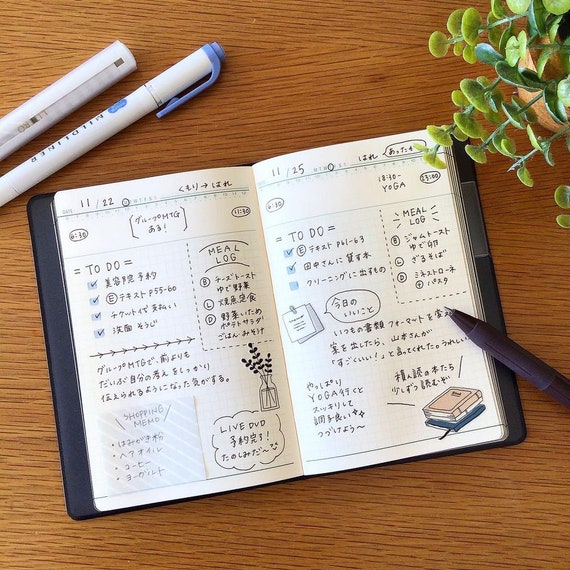 MILDLINER
DATE 11 / 22 M T W T F S S
くもり→はれ
6:30
グループMTG
ある!
11:30
= TO DO =
美容院予約
Ⓔテキスト P55-60
チケット代支払い
洗面そうじ
MEAL
LOG
Ⓑ チーズトースト
ゆで野菜
Ⓛ 焼魚定食
Ⓓ 野菜いため
ポテトサラダ
ごはん みそ汁
グループMTGで、前よりも
だいぶ自分の考えをしっかり
伝えられるようになった気がする。
SHOPPING
MEMO
・はみがき粉
・ヘアオイル
・コーヒー
・ヨーグルト
LIVE DVD
予約完了!
たのしみだ〜
DATE 11 / 25 M T W T F S S
はれ
あったかい
6:30
18:30-
YOGA
23:00
= TO DO =
Ⓔテキスト P61-63
田中さんに貸す本
クリーニングに出すもの
MEAL
LOG
Ⓑ ジャムトースト
ゆで卵
Ⓛ ざるそば
Ⓓ ミネストローネ
+ パスタ
今日の
いいこと
いつもの書類フォーマットを変える
案を出したら、山本さんが
「すごくいい!」と言ってくれたうれしい
やっぱり
YOGA行くと
スッキリして
調子良い
つづけよう〜
積ん読の本たち
少しずつ読むぞ